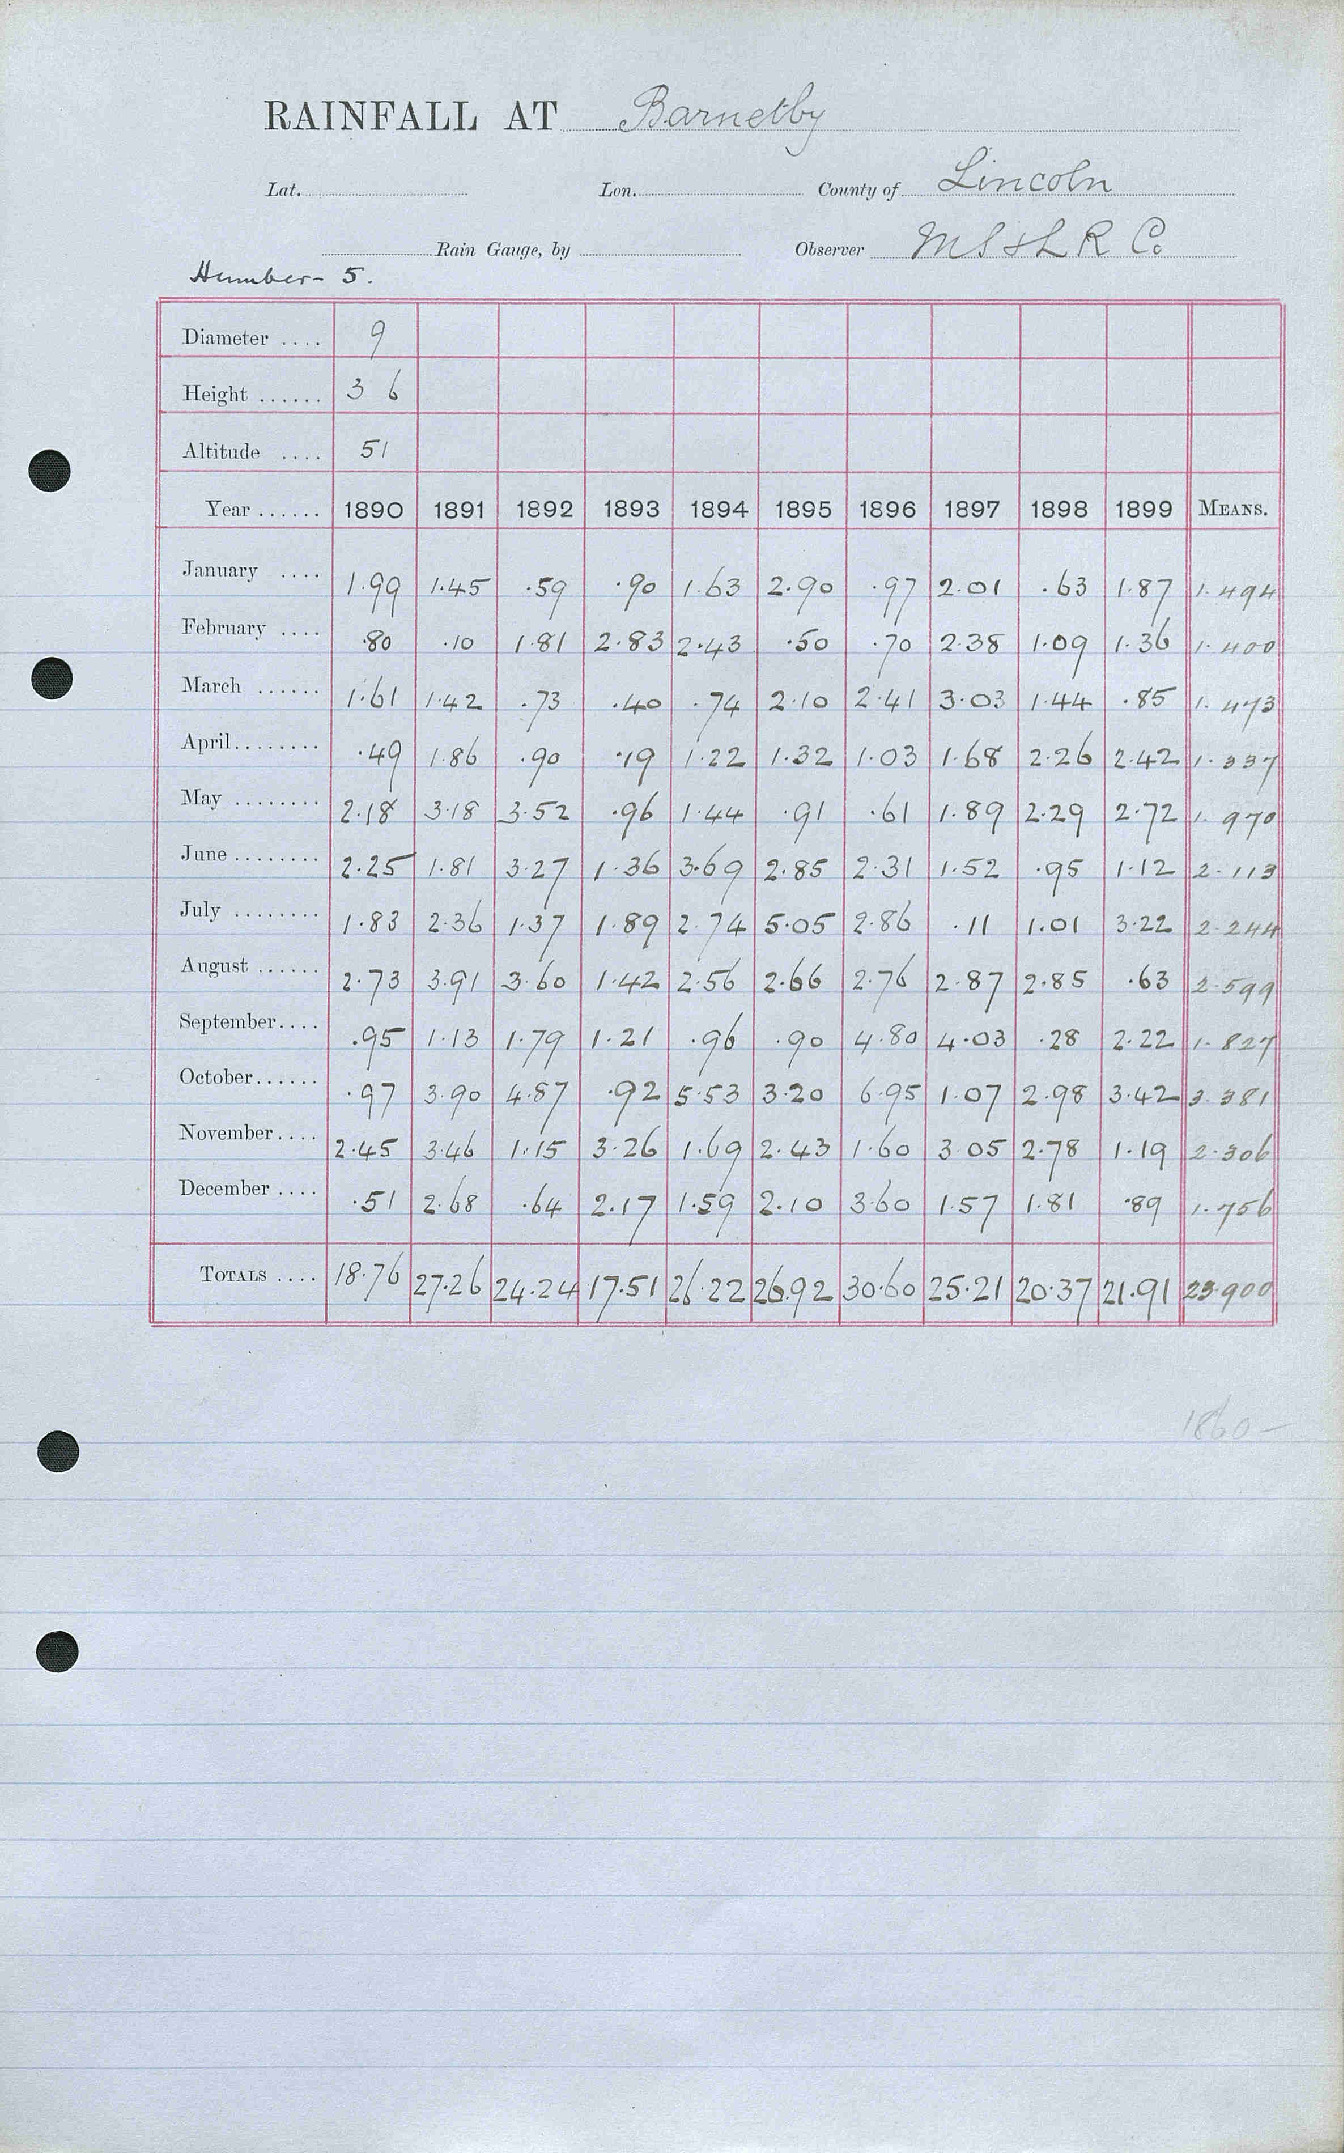 RAINFALL AT Barnetby
Lat. Lon. County of Lincoln
Rain Gauge, by Observer M S & L R Co
Humber - 5.
Diameter .... 9
Height ...... 3 6
Altitude .... 51
Year ...... 1890 1891 1892 1893 1894 1895 1896 1897 1898 1899 MEANS.
January .... 1.99 1.45 .59 .90 1.63 2.90 .97 2.01 .63 1.87 1.494
February .... .80 .10 1.81 2.83 2.43 .50 .70 2.38 1.09 1.36 1.400
March ...... 1.61 1.42 .73 .40 .74 2.10 2.41 3.03 1.44 .85 1.473
April........ .49 1.86 .90 .19 1.22 1.32 1.03 1.68 2.26 2.42 1.337
May ........ 2.18 3.18 3.52 .96 1.44 .91 .61 1.89 2.29 2.72 1.970
June ........ 2.25 1.81 3.27 1.36 3.69 2.85 2.31 1.52 .95 1.12 2.113
July ........ 1.83 2.36 1.37 1.89 2.74 5.05 2.86 .11 1.01 3.22 2.244
August ...... 2.73 3.91 3.60 1.42 2.56 2.66 2.76 2.87 2.85 .63 2.599
September.... .95 1.13 1.79 1.21 .96 .90 4.80 4.03 .28 2.22 1.827
October...... .97 3.90 4.87 .92 5.53 3.20 6.95 1.07 2.98 3.42 3.381
November.... 2.45 3.46 1.15 3.26 1.69 2.43 1.60 3.05 2.78 1.19 2.306
December .... .51 2.68 .64 2.17 1.59 2.10 3.60 1.57 1.81 .89 1.756
TOTALS .... 18.76 27.26 24.24 17.51 26.22 26.92 30.60 25.21 20.37 21.91 23.900
1860-